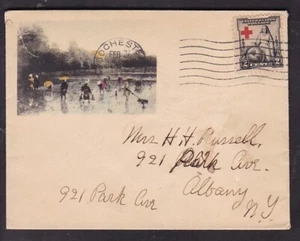 ROCHESTER
FEB
Mrs H. H. Russell,
921 Park Ave.
921 Park Ave
Albany
N.Y.